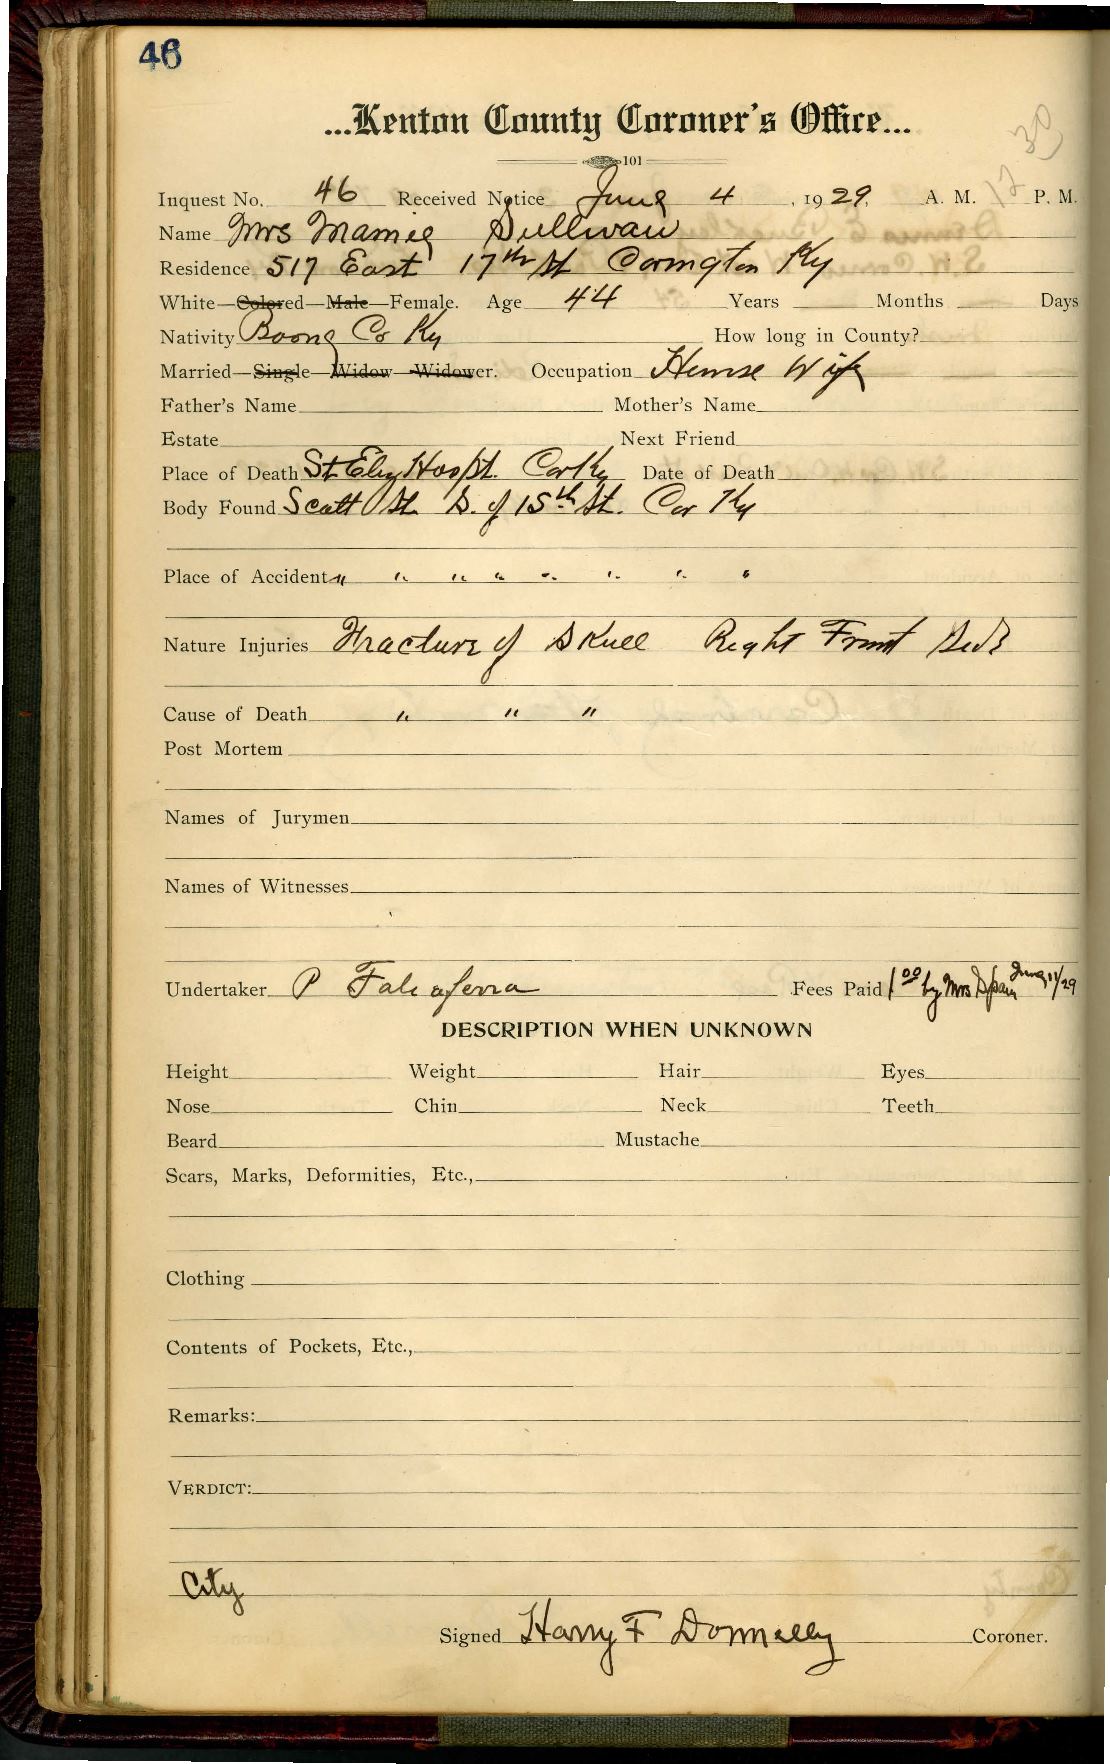 46
...Kenton County Coroner's Office...
101
Inquest No. 46 Received Notice June 4, 1929, A. M. P. M.
Name Mrs Mamie Sullivan
Residence 517 East 17th St Covington Ky
White—Colored—Male—Female. Age 44 Years Months Days
Nativity Boone Co Ky How long in County?
Married—Single—Widow—Widower. Occupation House Wife
Father's Name Mother's Name
Estate Next Friend
Place of Death St. Eliz Hospt. Cov Ky Date of Death
Body Found Scott St. S. of 15th St. Cov Ky
Place of Accident " " " " " " " "
Nature Injuries Fracture of Skull Right Front Side
Cause of Death " " "
Post Mortem
Names of Jurymen
Names of Witnesses
Undertaker P Fees Paid 1 00 by Mrs June 11/29
DESCRIPTION WHEN UNKNOWN
Height Weight Hair Eyes
Nose Chin Neck Teeth
Beard Mustache
Scars, Marks, Deformities, Etc.,
Clothing
Contents of Pockets, Etc.,
Remarks:
VERDICT:
City
Signed Harry F Donnelly Coroner.